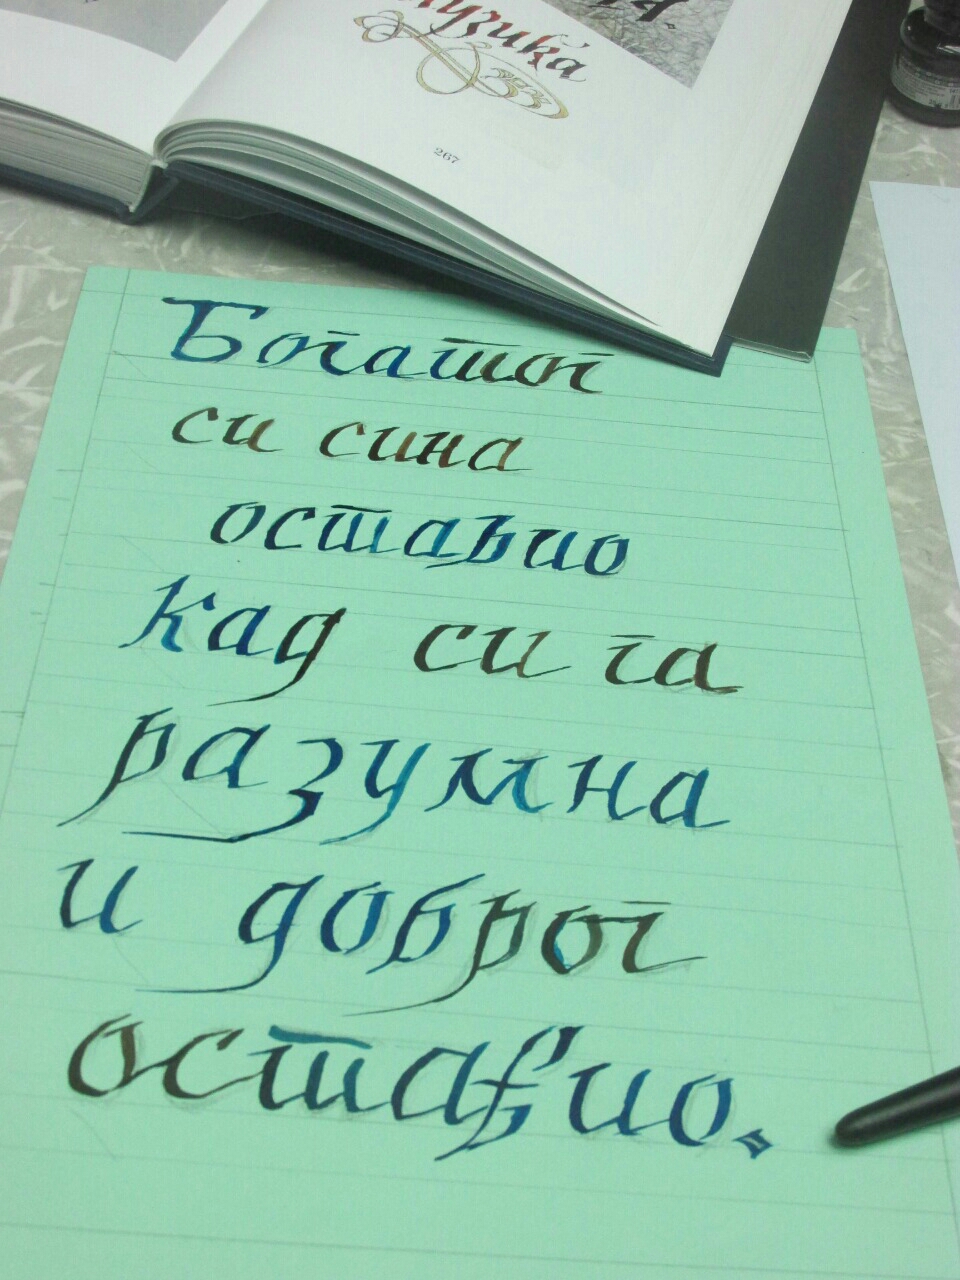 Музика
267
Богатог
си сина
оставио
кад си га
разумна
и доброг
оставио.